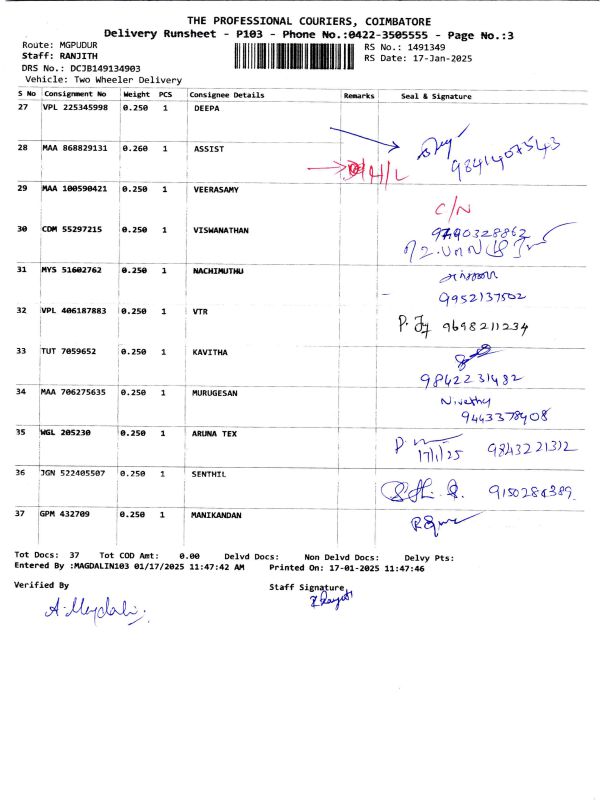 THE PROFESSIONAL COURIERS, COIMBATORE
Delivery Runsheet - P103 - Phone No.:0422-3505555 - Page No.:3
Route: MGPUDUR
RS No.: 1491349
Staff: RANJITH
RS Date: 17-Jan-2025
DRS No.: DCJB149134903
Vehicle: Two Wheeler Delivery
S No Consignment No Weight PCS Consignee Details Remarks Seal & Signature
27 VPL 225345998 0.250 1 DEEPA
28 MAA 868829131 0.260 1 ASSIST 9841407543
H/L
29 MAA 100590421 0.250 1 VEERASAMY
C/N
30 CDM 55297215 0.250 1 VISWANATHAN
31 MYS 51602762 0.250 1 NACHIMUTHU
9952137502
32 VPL 406187883 0.250 1 VTR 9698211234
33 TUT 7059652 0.250 1 KAVITHA
9842231482
34 MAA 706275635 0.250 1 MURUGESAN Nivethy
9443378408
35 WGL 205230 0.250 1 ARUNA TEX 17/1/25 9843221312
36 JGN 522405507 0.250 1 SENTHIL 9150284389
37 GPM 432709 0.250 1 MANIKANDAN
Tot Docs: 37 Tot COD Amt: 0.00 Delvd Docs: Non Delvd Docs: Delvy Pts:
Entered By :MAGDALIN103 01/17/2025 11:47:42 AM Printed On: 17-01-2025 11:47:46
Verified By Staff Signature